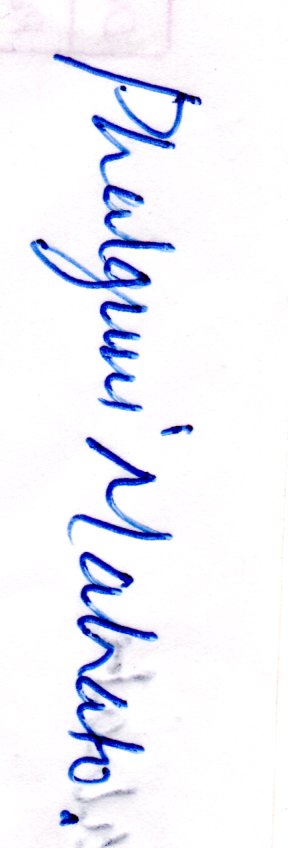 Phalguni Mahato.